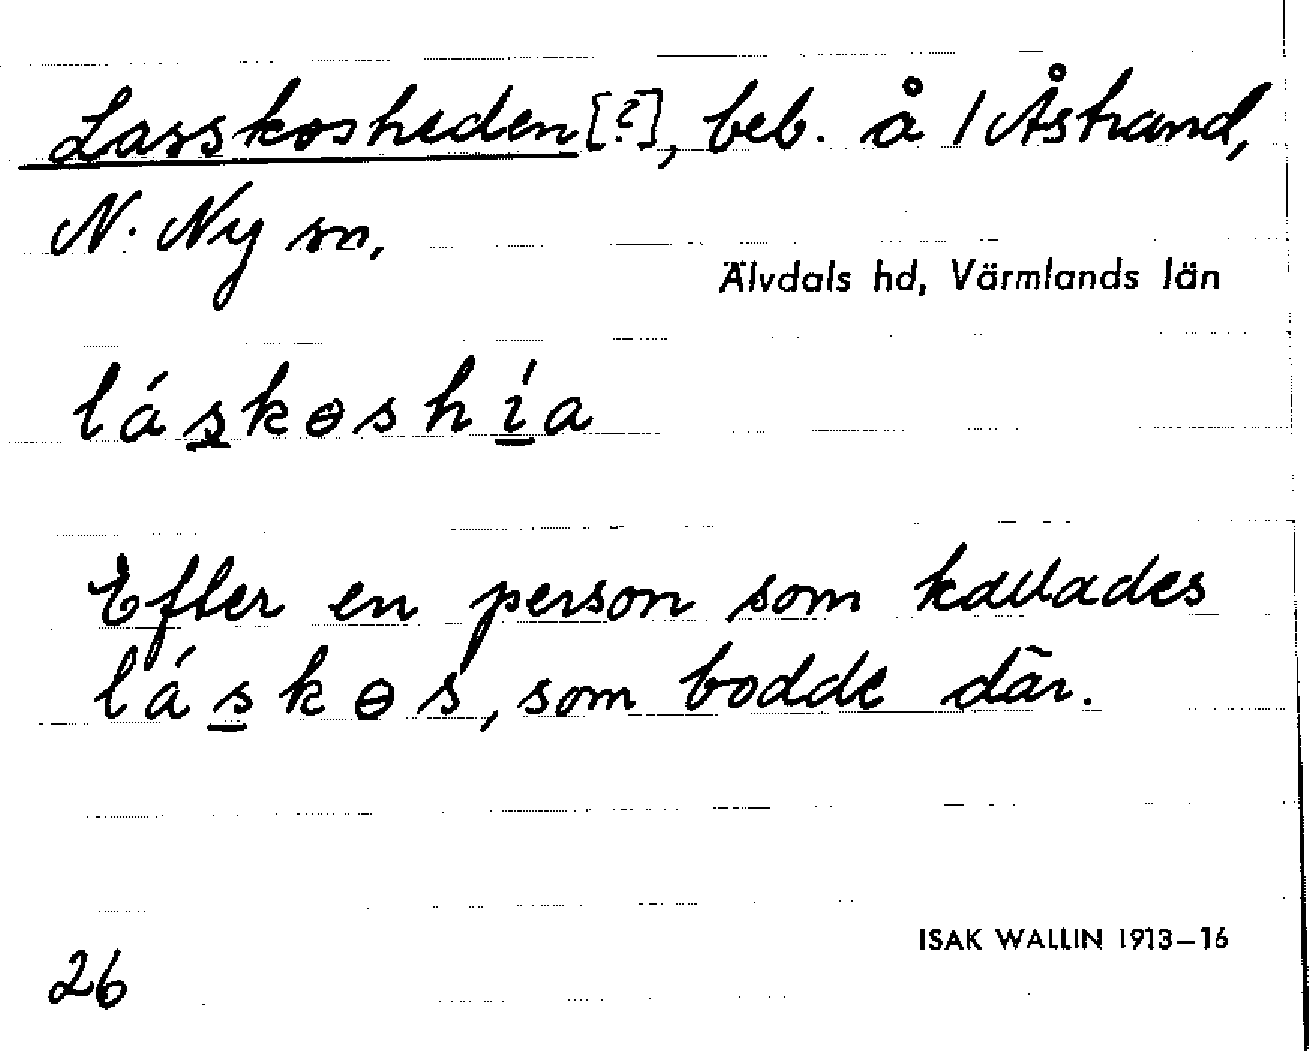 Lasskosheden [?], beb. å 1 Åstrand,
N. Ny sn,
Älvdals hd, Värmlands län
láskɵshía
Efter en person som kallades
láskɵs, som bodde där.
ISAK WALLIN 1913–16
26